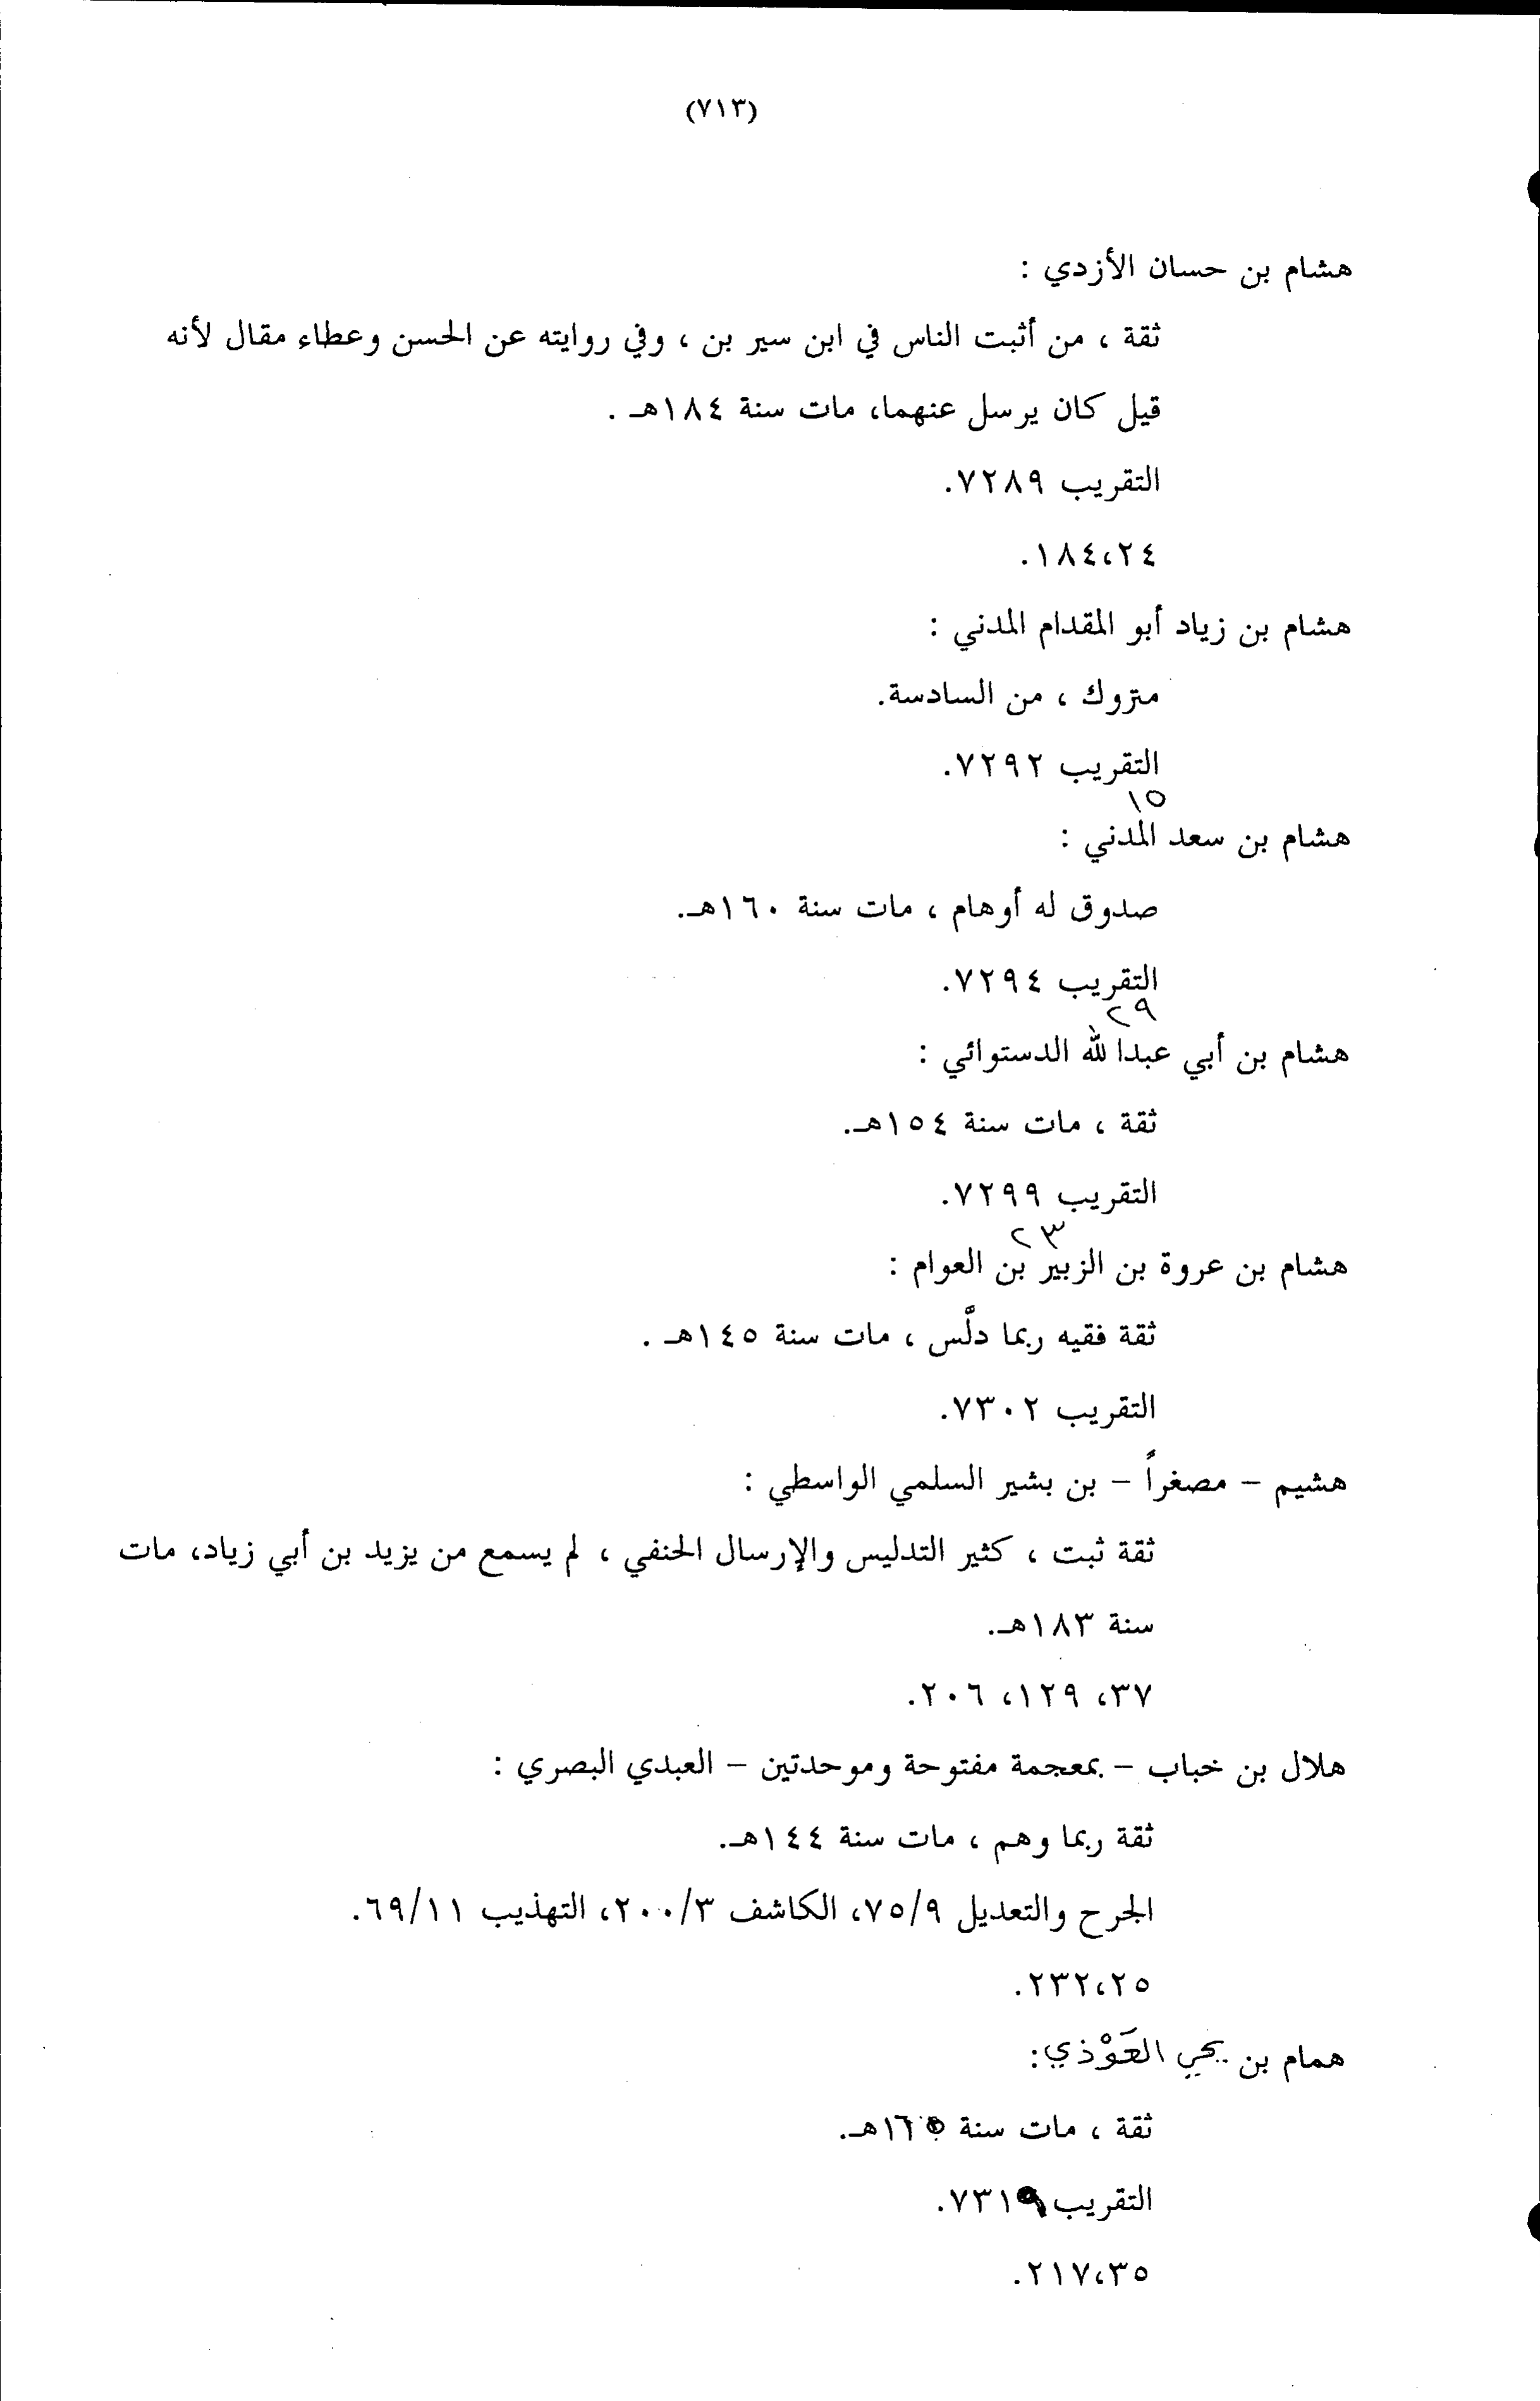 (٧١٣)
هشام بن حسان الأزدي :
ثقة ، من أثبت الناس في ابن سير بن ، وفي روايته عن الحسن وعطاء مقال لأنه
قيل كان يرسل عنهما، مات سنة ١٨٤هـ .
التقريب ٧٢٨٩.
١٨٤،٢٤.
هشام بن زياد أبو المقدام المدني :
متروك ، من السادسة.
التقريب ٧٢٩٢.
١٥
هشام بن سعد المدني :
صدوق له أوهام ، مات سنة ١٦٠هـ.
التقريب ٧٢٩٤.
٢٩
هشام بن أبي عبدا لله الدستوائي :
ثقة ، مات سنة ١٥٤هـ.
التقريب ٧٢٩٩.
٢٣
هشام بن عروة بن الزبير بن العوام :
ثقة فقيه ربما دلَّس ، مات سنة ١٤٥هـ .
التقريب ٧٣٠٢.
هشيم – مصغراً – بن بشير السلمي الواسطي :
ثقة ثبت ، كثير التدليس والإرسال الحنفي ، لم يسمع من يزيد بن أبي زياد، مات
سنة ١٨٣هـ.
٣٧، ١٢٩، ٢٠٦.
هلال بن خباب – بمعجمة مفتوحة وموحدتين – العبدي البصري :
ثقة ربما وهم ، مات سنة ١٤٤هـ.
الجرح والتعديل ٧٥/٩، الكاشف ٢٠٠/٣، التهذيب ٦٩/١١.
٢٣٢،٢٥.
همام بن يحي العَوْذي:
ثقة ، مات سنة ١٦٥هـ.
التقريب ٧٣١٩.
٢١٧،٣٥.